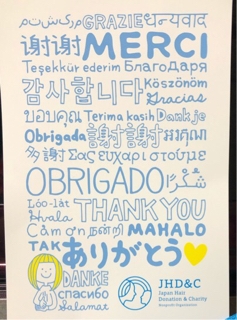 GRAZIE धन्यवाद
谢谢 MERCI
Teşekkür ederim Благодаря
감사합니다 Köszönöm
Gracias
ขอบคุณ Terima kasih Dank je
Obrigada 謝謝 អរគុណ
多謝 Σας ευχαριστούμε
OBRIGADO شكرًا
Hvala THANK YOU
Cảm ơn நன்றி MAHALO
TAK ありがとう
DANKE
спасибо
Salamat
JHD&C
Japan Hair
Donation & Charity